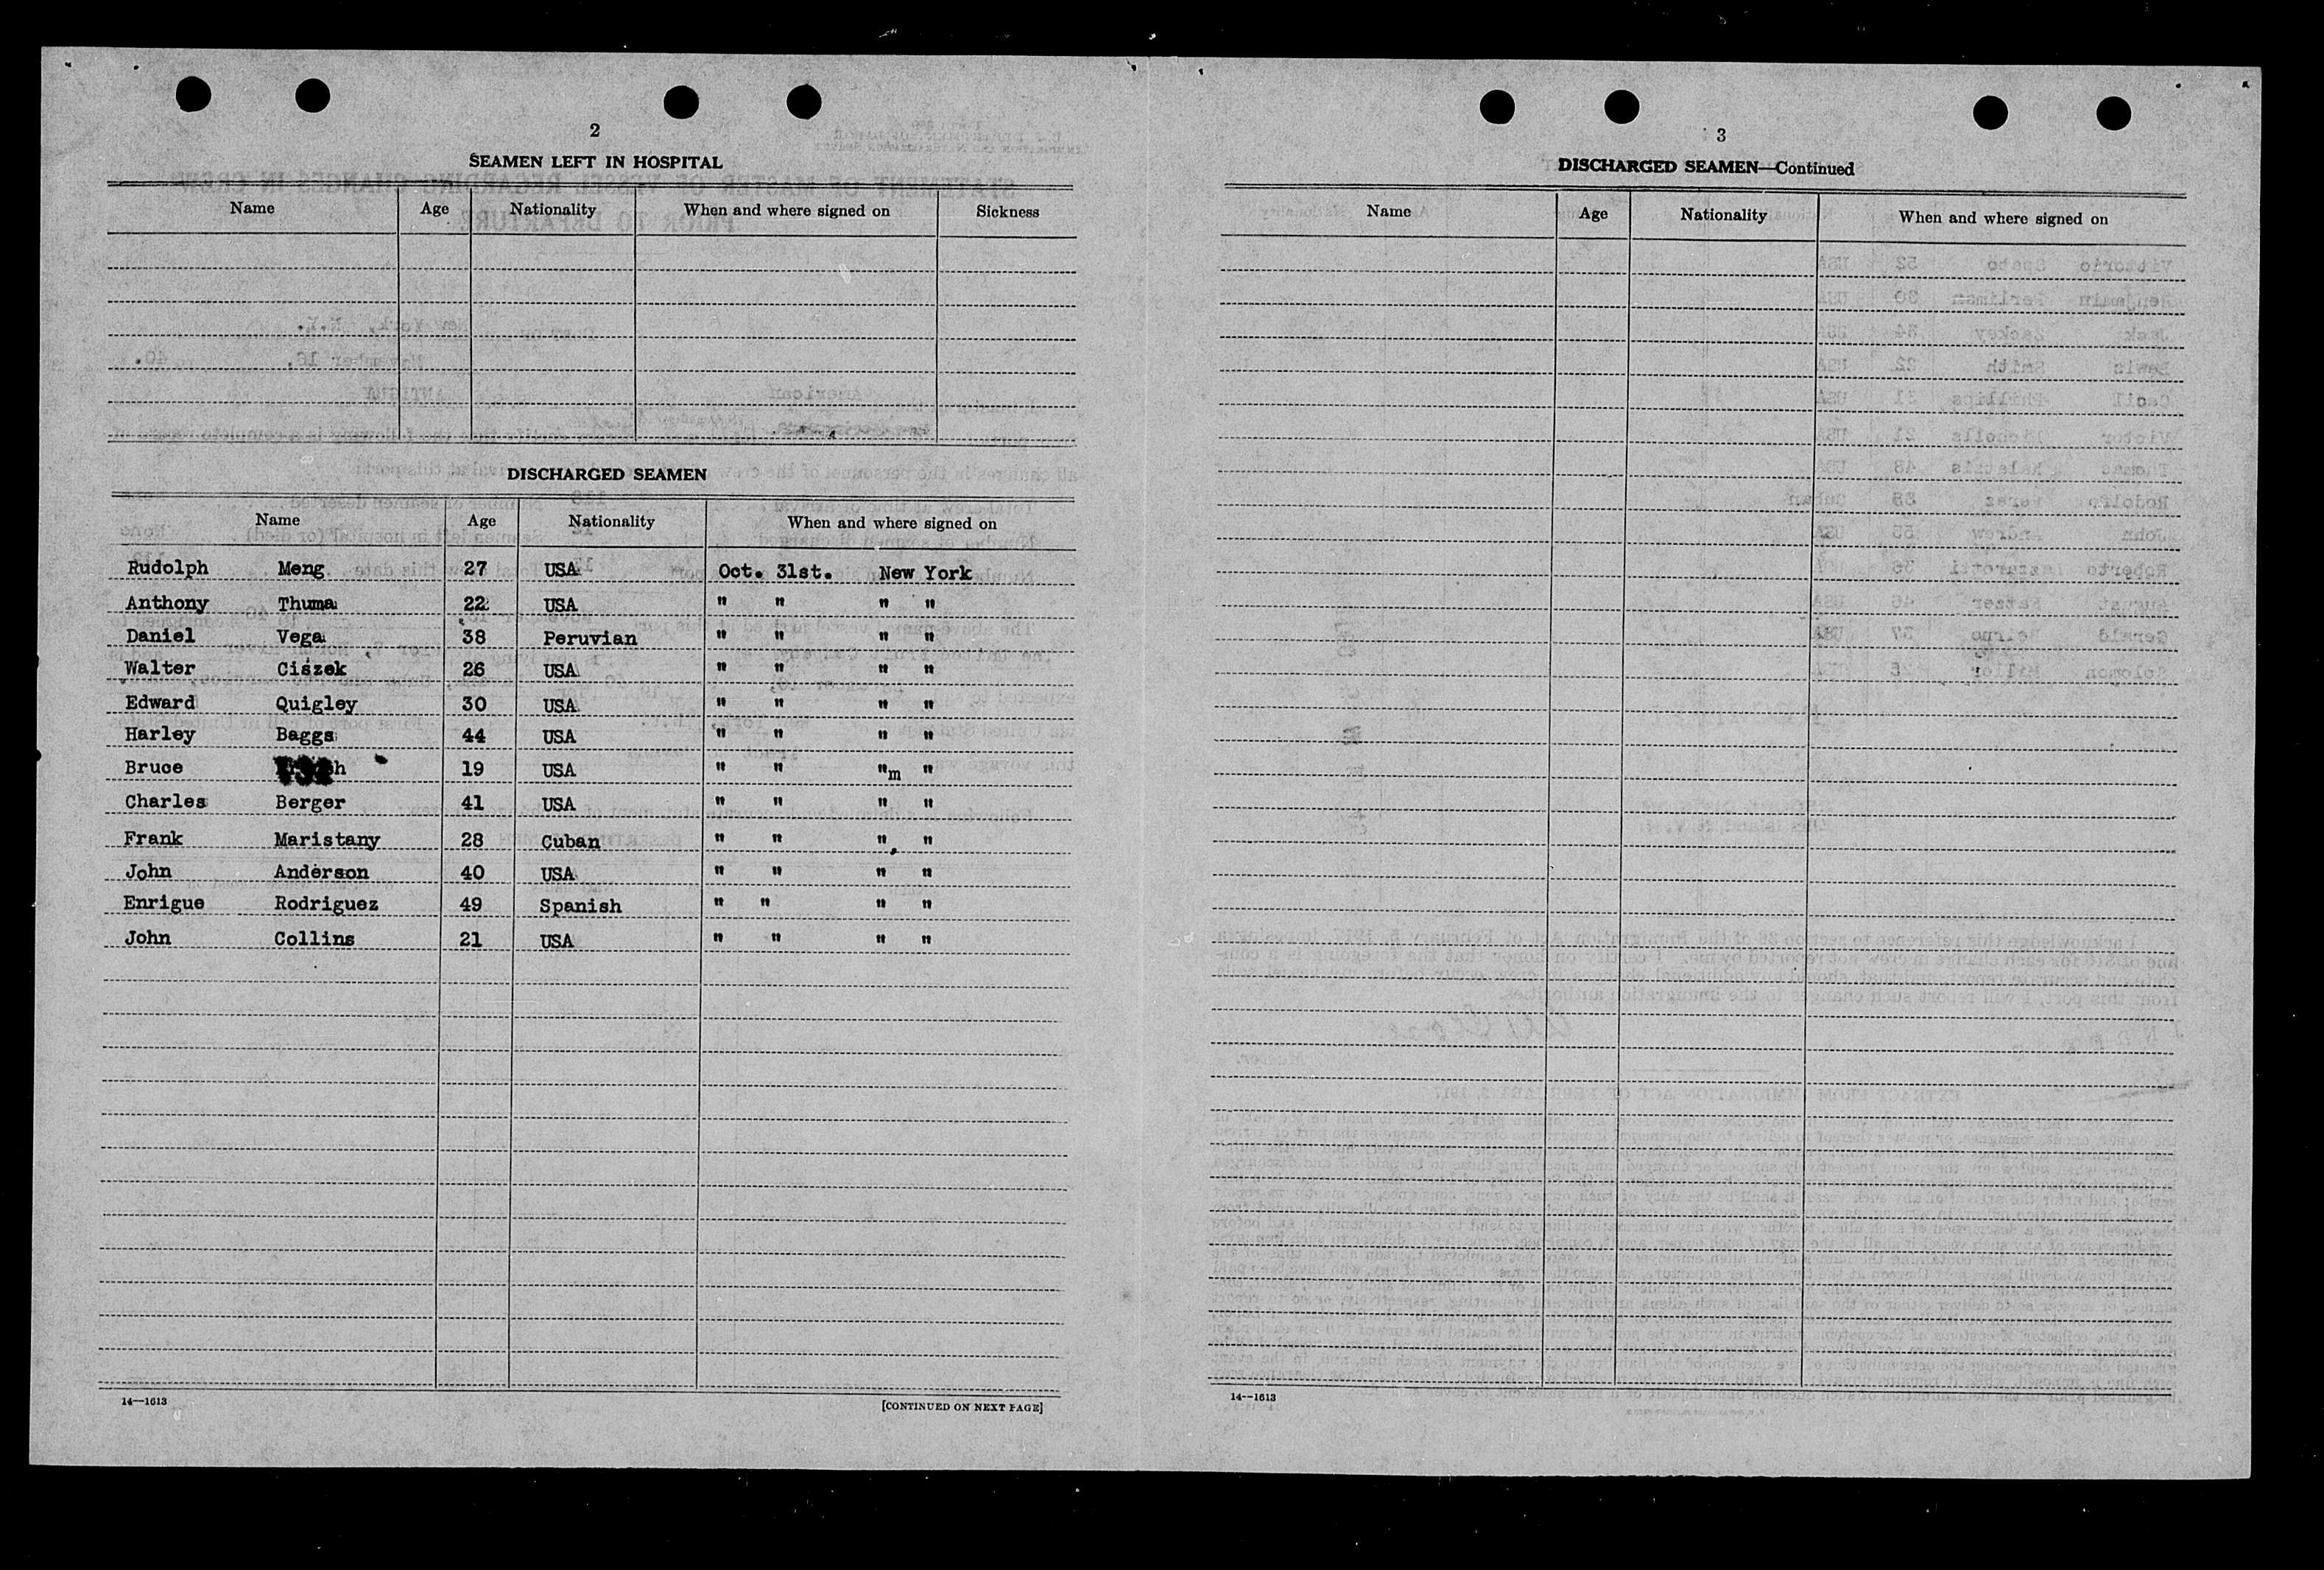 2
SEAMEN LEFT IN HOSPITAL
Name Age Nationality When and where signed on Sickness
DISCHARGED SEAMEN
Name Age Nationality When and where signed on
Rudolph Meng 27 USA Oct. 31st. New York
Anthony Thuma 22 USA " " " "
Daniel Vega 38 Peruvian " " " "
Walter Ciszek 26 USA " " " "
Edward Quigley 30 USA " " " "
Harley Baggs 44 USA " " " "
Bruce 19 USA " " "m "
Charles Berger 41 USA " " " "
Frank Maristany 28 Cuban " " ", "
John Anderson 40 USA " " " "
Enrigue Rodriguez 49 Spanish " " " "
John Collins 21 USA " " " "
14—1613 [CONTINUED ON NEXT PAGE]
3
DISCHARGED SEAMEN—Continued
Name Age Nationality When and where signed on
14—1613